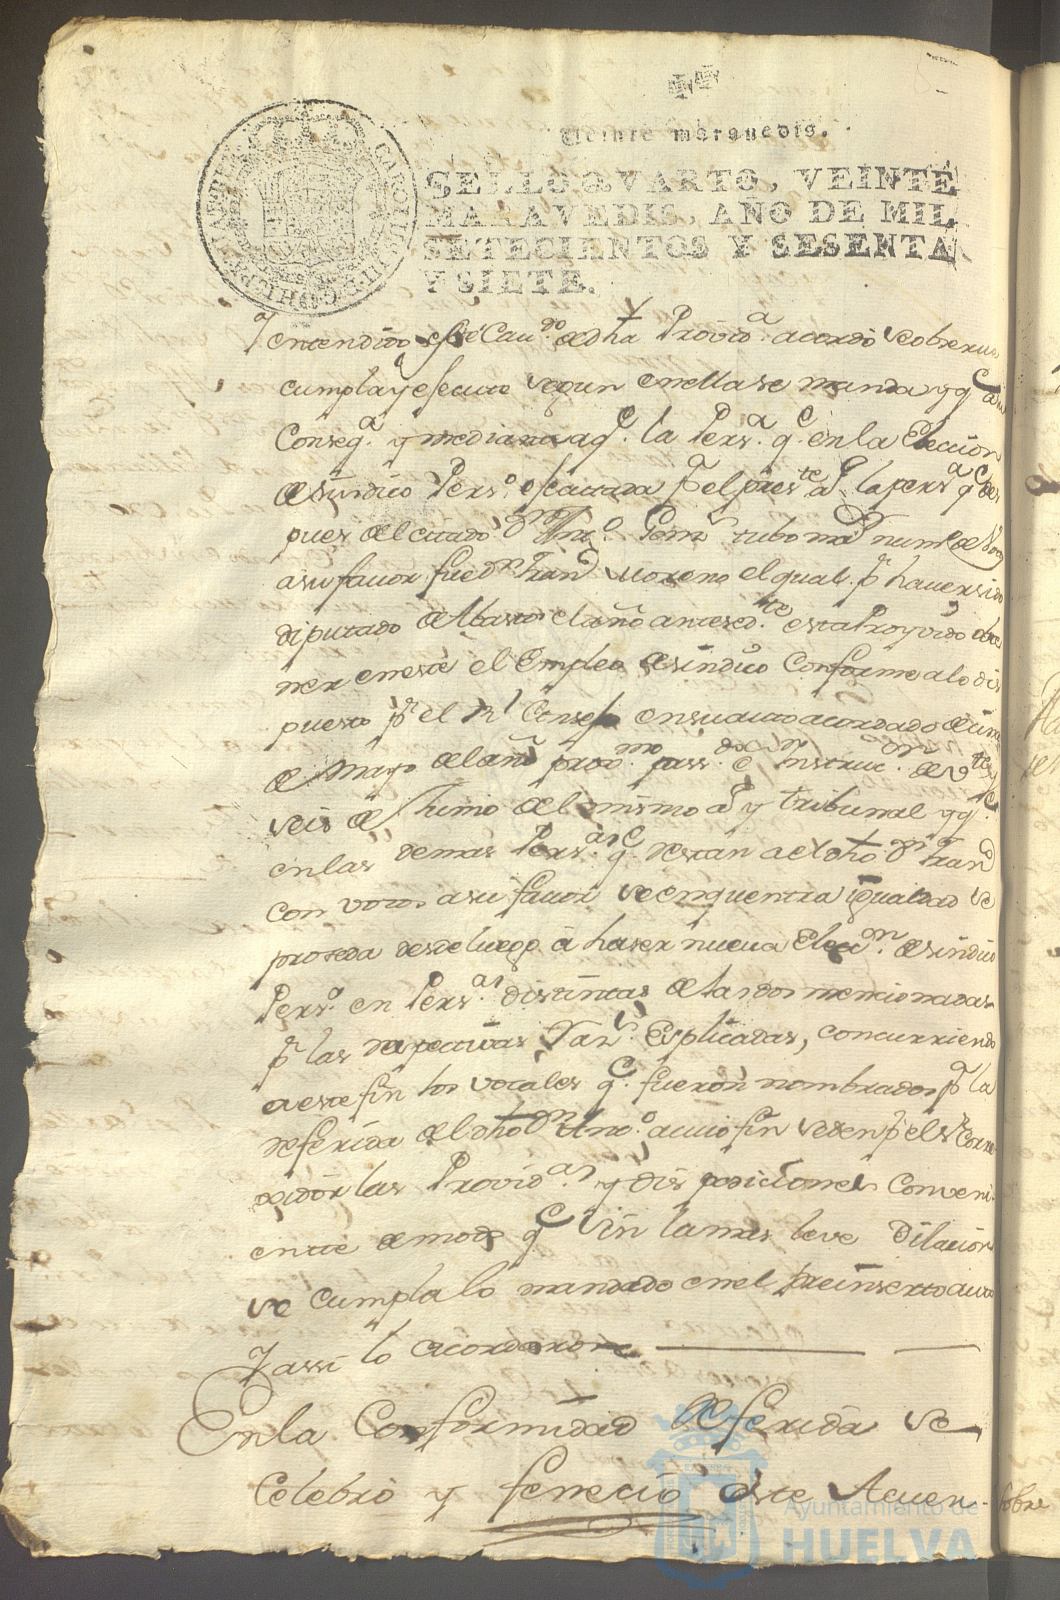 Veinte maravedis.
SELLO QVARTO, VEINTE
MARAVEDIS, AÑO DE MIL
SETECIENTOS Y SESENTA
Y SIETE.
Y entendido este Cau.do de dha Provid.a acordò se obserue
cumpla y execute segun en ella se manda y q.e
Conseq.a y mediante a q.e la Pers.a q.e en la Eleccion
de sindico Pers.o efectuada p.r el pres.te la pers.a q.e des
pues del citado D.n Ant.o tubo mas num.o de Votos
a su fauor fue D.n Fran.co Moreno el qual p.r hauer sido
diputado de Abastos el año antesed.te esta Proyvido obte
ner en este el Empleo de sindico Conforme a lo dis
puesto p.r el R.l Consejo en su auto acordado de cinco
de Mayo del año prox.mo pass.do e Instruc.n de v.te y
seis de Junio del mismo y tribunal y q.e
en las demas Pers.as q.e restan a el dho D.n Fran.co
con votos a su fauor se enquentra igualdad se
proseda desde luego à haser nueua Elecc.n de sindico
Pers.o en Pers.as distintas de las dos mencionadas
p.r las respectivas Explicadas, concurriendo
a este fin los vocales q.e fueron nombrados p.r la
referida del dho D.n Ant.o a cuio fin se den p.r el S.r Corre
xidor las Provid.as y disposiciones Conveni
ente de modo q.e sin la mas leve Dilacion
se cumpla lo mandado en el preinserto auto
Y assi lo acordaron
En la Conformidad Referida se
Celebrò y fenecio este Acuer-
sobre
Ayuntamiento de
HUELVA